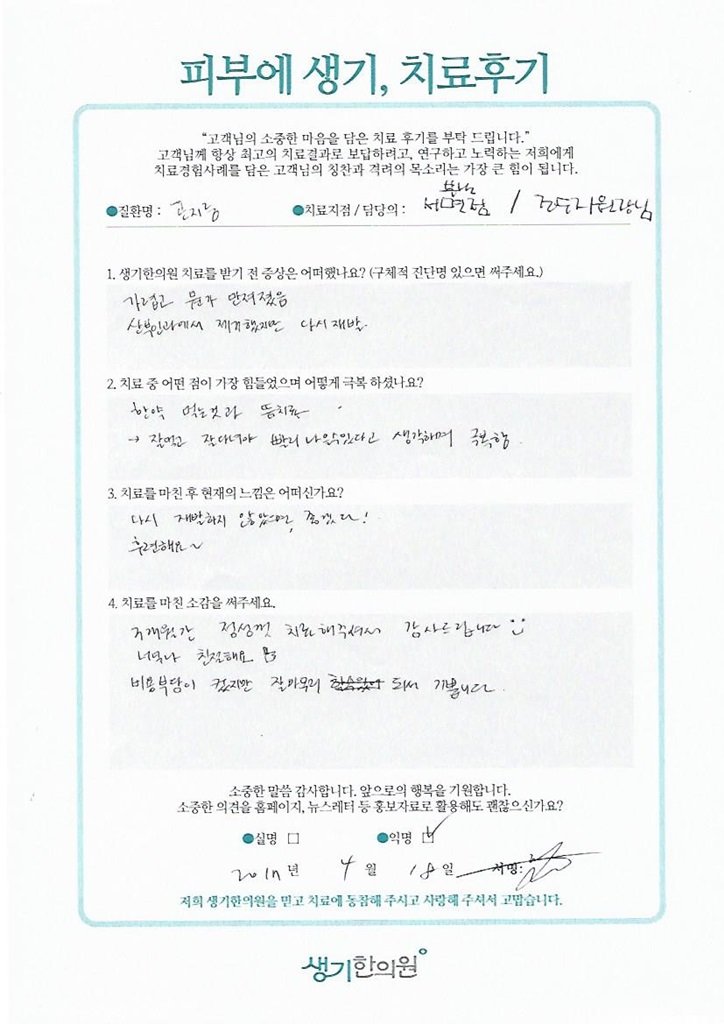 피부에 생기, 치료후기
"고객님의 소중한 마음을 담은 치료 후기를 부탁 드립니다."
고객님께 항상 최고의 치료결과로 보답하려고, 연구하고 노력하는 저희에게
치료경험사례를 담은 고객님의 칭찬과 격려의 목소리는 가장 큰 힘이 됩니다.
●질환명 : 곤지름 ●치료지점 / 담당의 : 서면점 / 원장님
1. 생기한의원 치료를 받기 전 증상은 어떠했나요? (구체적 진단명 있으면 써주세요.)
가렵고 뭔가 만져졌음
산부인과에서 제거했지만 다시 재발.
2. 치료 중 어떤 점이 가장 힘들었으며 어떻게 극복 하셨나요?
한약 먹는것과 뜸치료
→ 잘먹고 잘다녀야 빨리 나을수있다고 생각하며 극복함.
3. 치료를 마친 후 현재의 느낌은 어떠신가요?
다시 재발하지 않았으면 좋겠다!
후련해요~
4. 치료를 마친 소감을 써주세요.
개월간 정성껏 치료해주셔서 감사드립니다
너무나 친절해요
비용부담이 컸지만 잘마무리 되서 기쁩니다.
소중한 말씀 감사합니다. 앞으로의 행복을 기원합니다.
소중한 의견을 홈페이지, 뉴스레터 등 홍보자료로 활용해도 괜찮으신가요?
●실명 □ ●익명 ☑
2017년 4월 18일 서명:
저희 생기한의원을 믿고 치료에 동참해 주시고 사랑해 주셔서 고맙습니다.
생기한의원